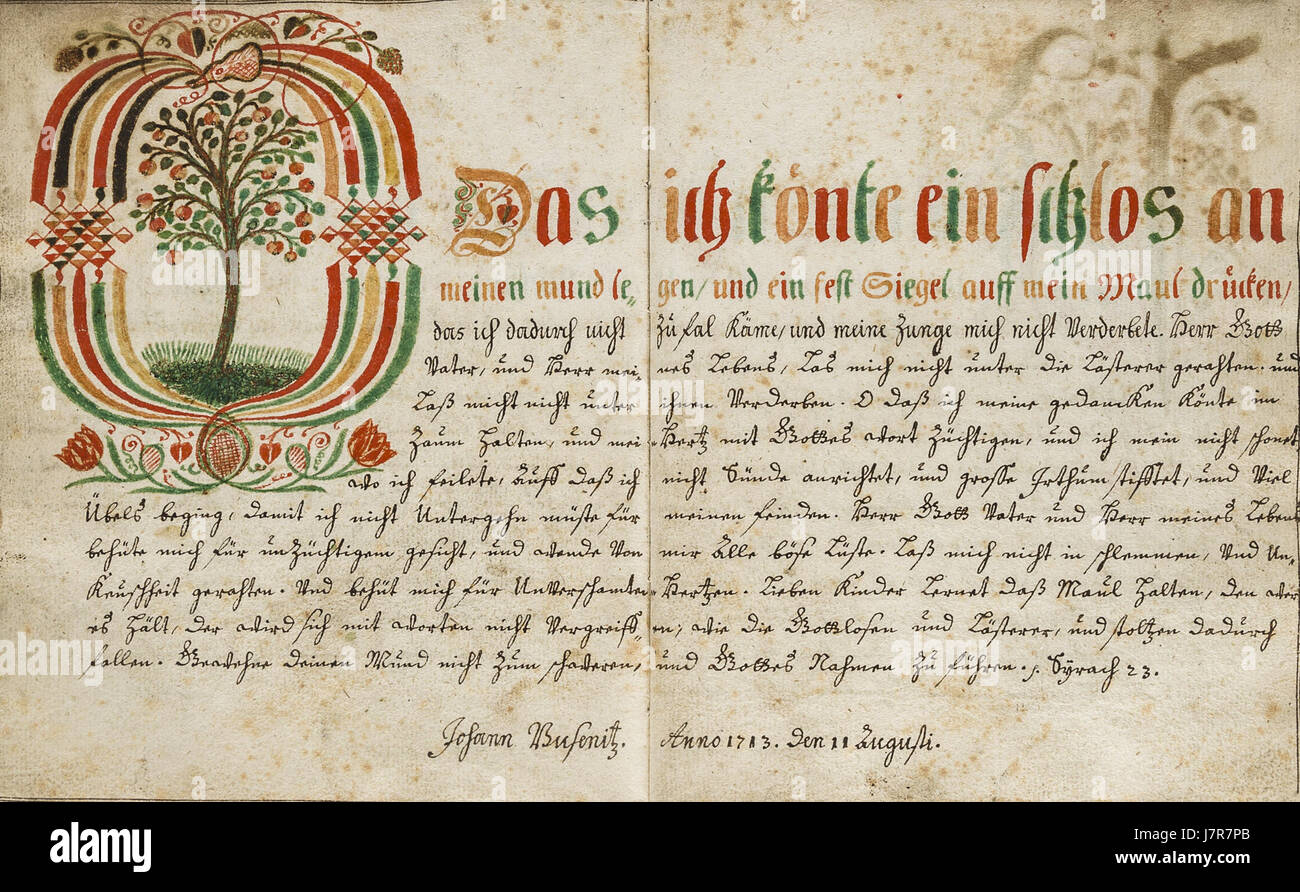 Das ich könte ein schlos an
meinen mund le„ gen/ und ein fest Siegel auff mein Maul drücken/
das ich dadurch nicht Zu fal Käme/ und meine Zunge mich nicht Verderbete. Herr Gott
Vater, und Herr mei„ nes Lebens, Las mich nicht unter die Lästerer gerahten. und
Laß micht nicht unter ihnen Verderben. O daß ich meine gedancken Könte im
Zaum Halten, und mei„ Hertz mit Gottes wort Züchtigen, und ich mein nicht schonet
wo ich feilete, Auff daß ich nicht Sünde anrichtet, und grosse Irthum stifftet, und Viel
Übels beging, damit ich nicht Untergehn müste für meinen feinden. Herr Gott Vater und Herr meines Leben
behüte mich für unZüchtigem gesicht, und wende Von mir Alle böse Lüste. Laß mich nicht in schlemmen, Und Un„
Keuschheit gerahten. Und behüt mich für Unverschamten Hertzen. Lieben Kinder Lernet daß Maul Halten, den wer
es Hält, der wird sich mit worten nicht Vergreiff„ en; wie die Gottlosen und Lästerer, und stoltzen dadurch
fallen. Gewehne deinen Mund nicht Zum schweren, und Gottes Nahmen Zu führen. s. Syrach 23.
Johann Busenitz. Anno 1713. Den 11 Augusti.
alamy
Image ID: J7R7PB
www.alamy.com